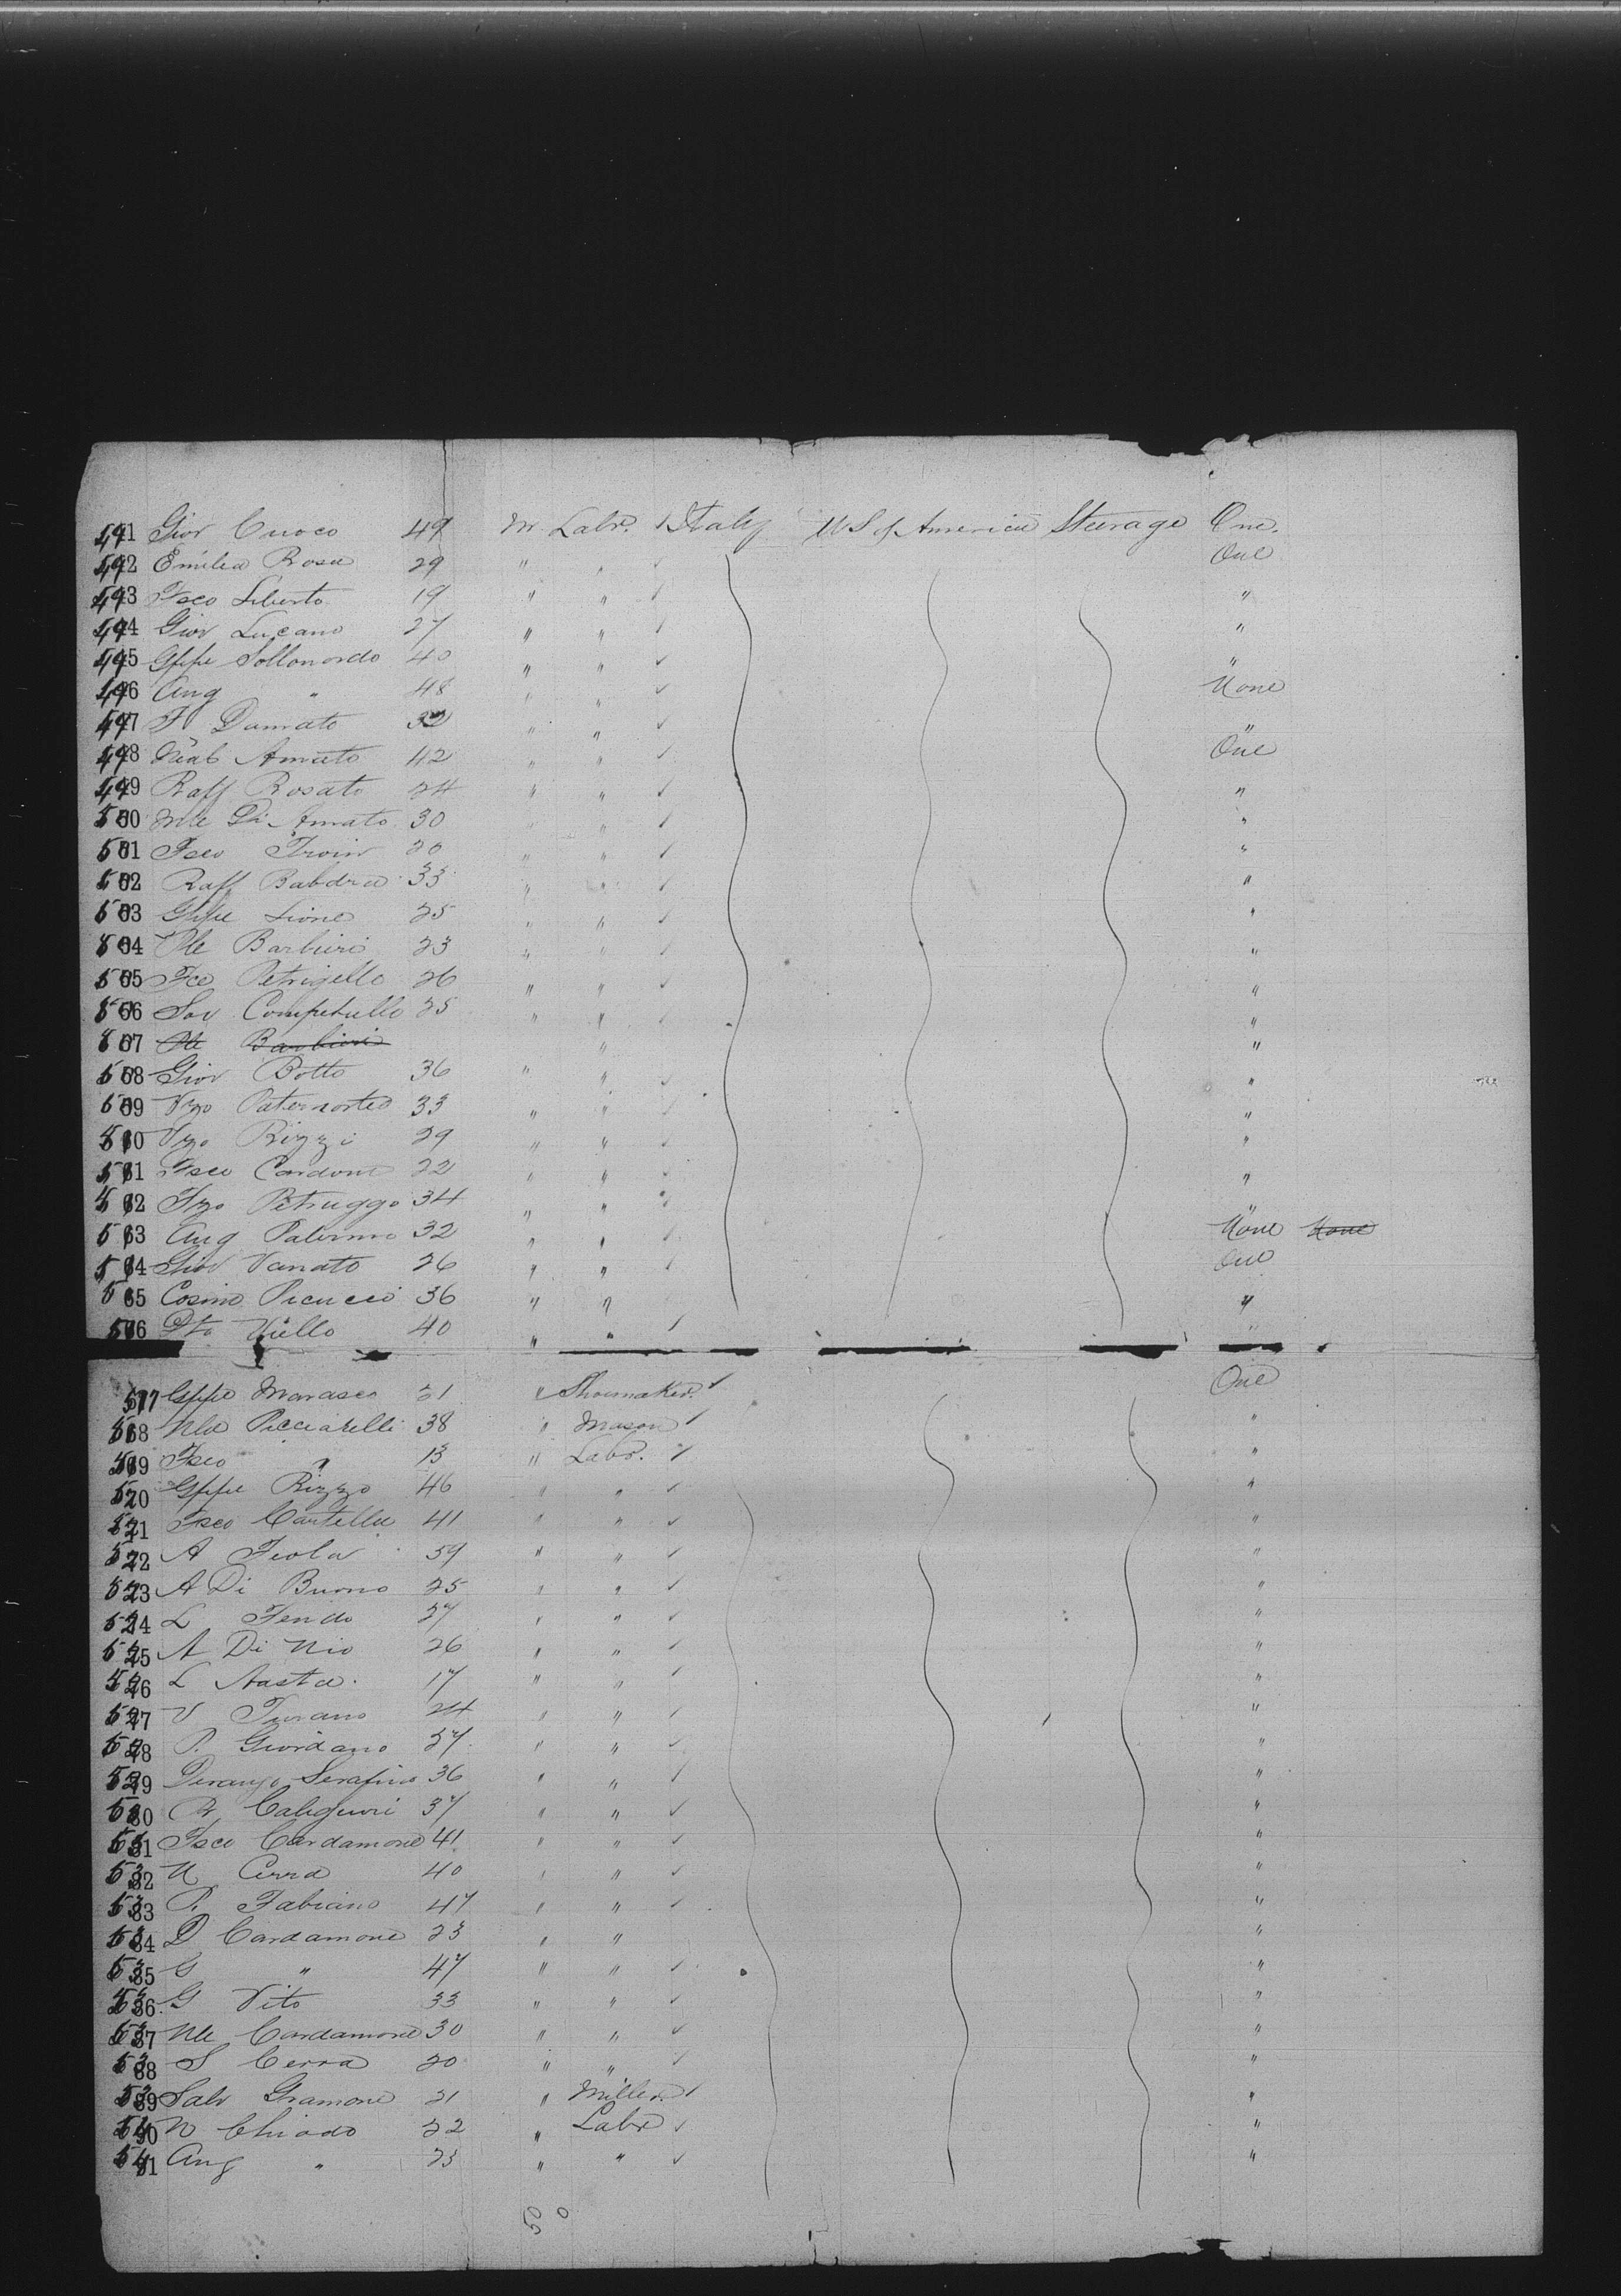 491 Giov Cuoco 49 M Labr. Italy U S of America Steerage One.
492 Emilia Rosa 29 " " One
493 Fsco Liberto 19 " " "
494 Giov Lucano 27 " " "
495 Gppe Sollonardo 40 " " "
496 Ang " 48 " " None
497 F Damato 32 " " "
498 Amato 42 " " One
499 Raff Rosato 24 " " "
500 Mle Di Amato 30 " " "
501 Fsco 20 " " "
502 Raff Babdra 33 " " "
503 Gppe Lione 25 " " "
504 Ple Barbieri 23 " " "
505 Fco Petrigello 26 " " "
506 Sav 25 " " "
507 Ple Barbieri " "
508 Giov Botto 36 " " "
509 Vzo Paternostro 33 " " "
510 Vzo Rizzi 29 " " "
511 Fsco Cardone 22 " " "
512 Petruggo 34 " " "
513 Ang Palermo 32 " " None None
514 Giov Vanato 26 " " One
515 Cosimo Picucci 36 " " "
516 Viello 40 " " "
517 Gppe Marasco 31 " Shoemaker. One
518 Nla Picciarelli 38 " Mason "
519 Fsco " 13 " Labr. "
520 Gppe Rizzo 46 " " "
521 Fsco Cartella 41 " " "
522 A Feola 39 " " "
523 A Di Buono 25 " " "
524 L Fendo 27 " " "
525 A Di Nio 26 " " "
526 L Aasta. 17 " " "
527 V Turano 24 " " "
528 P. Giordano 37 " " "
529 Serafino 36 " " "
530 R Caligiuri 37 " " "
531 Fsco Cardamone 41 " " "
532 N Cerra 40 " " "
533 P. Fabiano 47 " " "
534 D Cardamone 23 " " "
535 G " 47 " " "
536 G Vito 33 " " "
537 Nle Cardamone 30 " " "
538 S Cerra 20 " " "
539 Salv Gramone 21 " Miller "
540 N Chiodo 22 " Labr "
541 Ang " 23 " " "